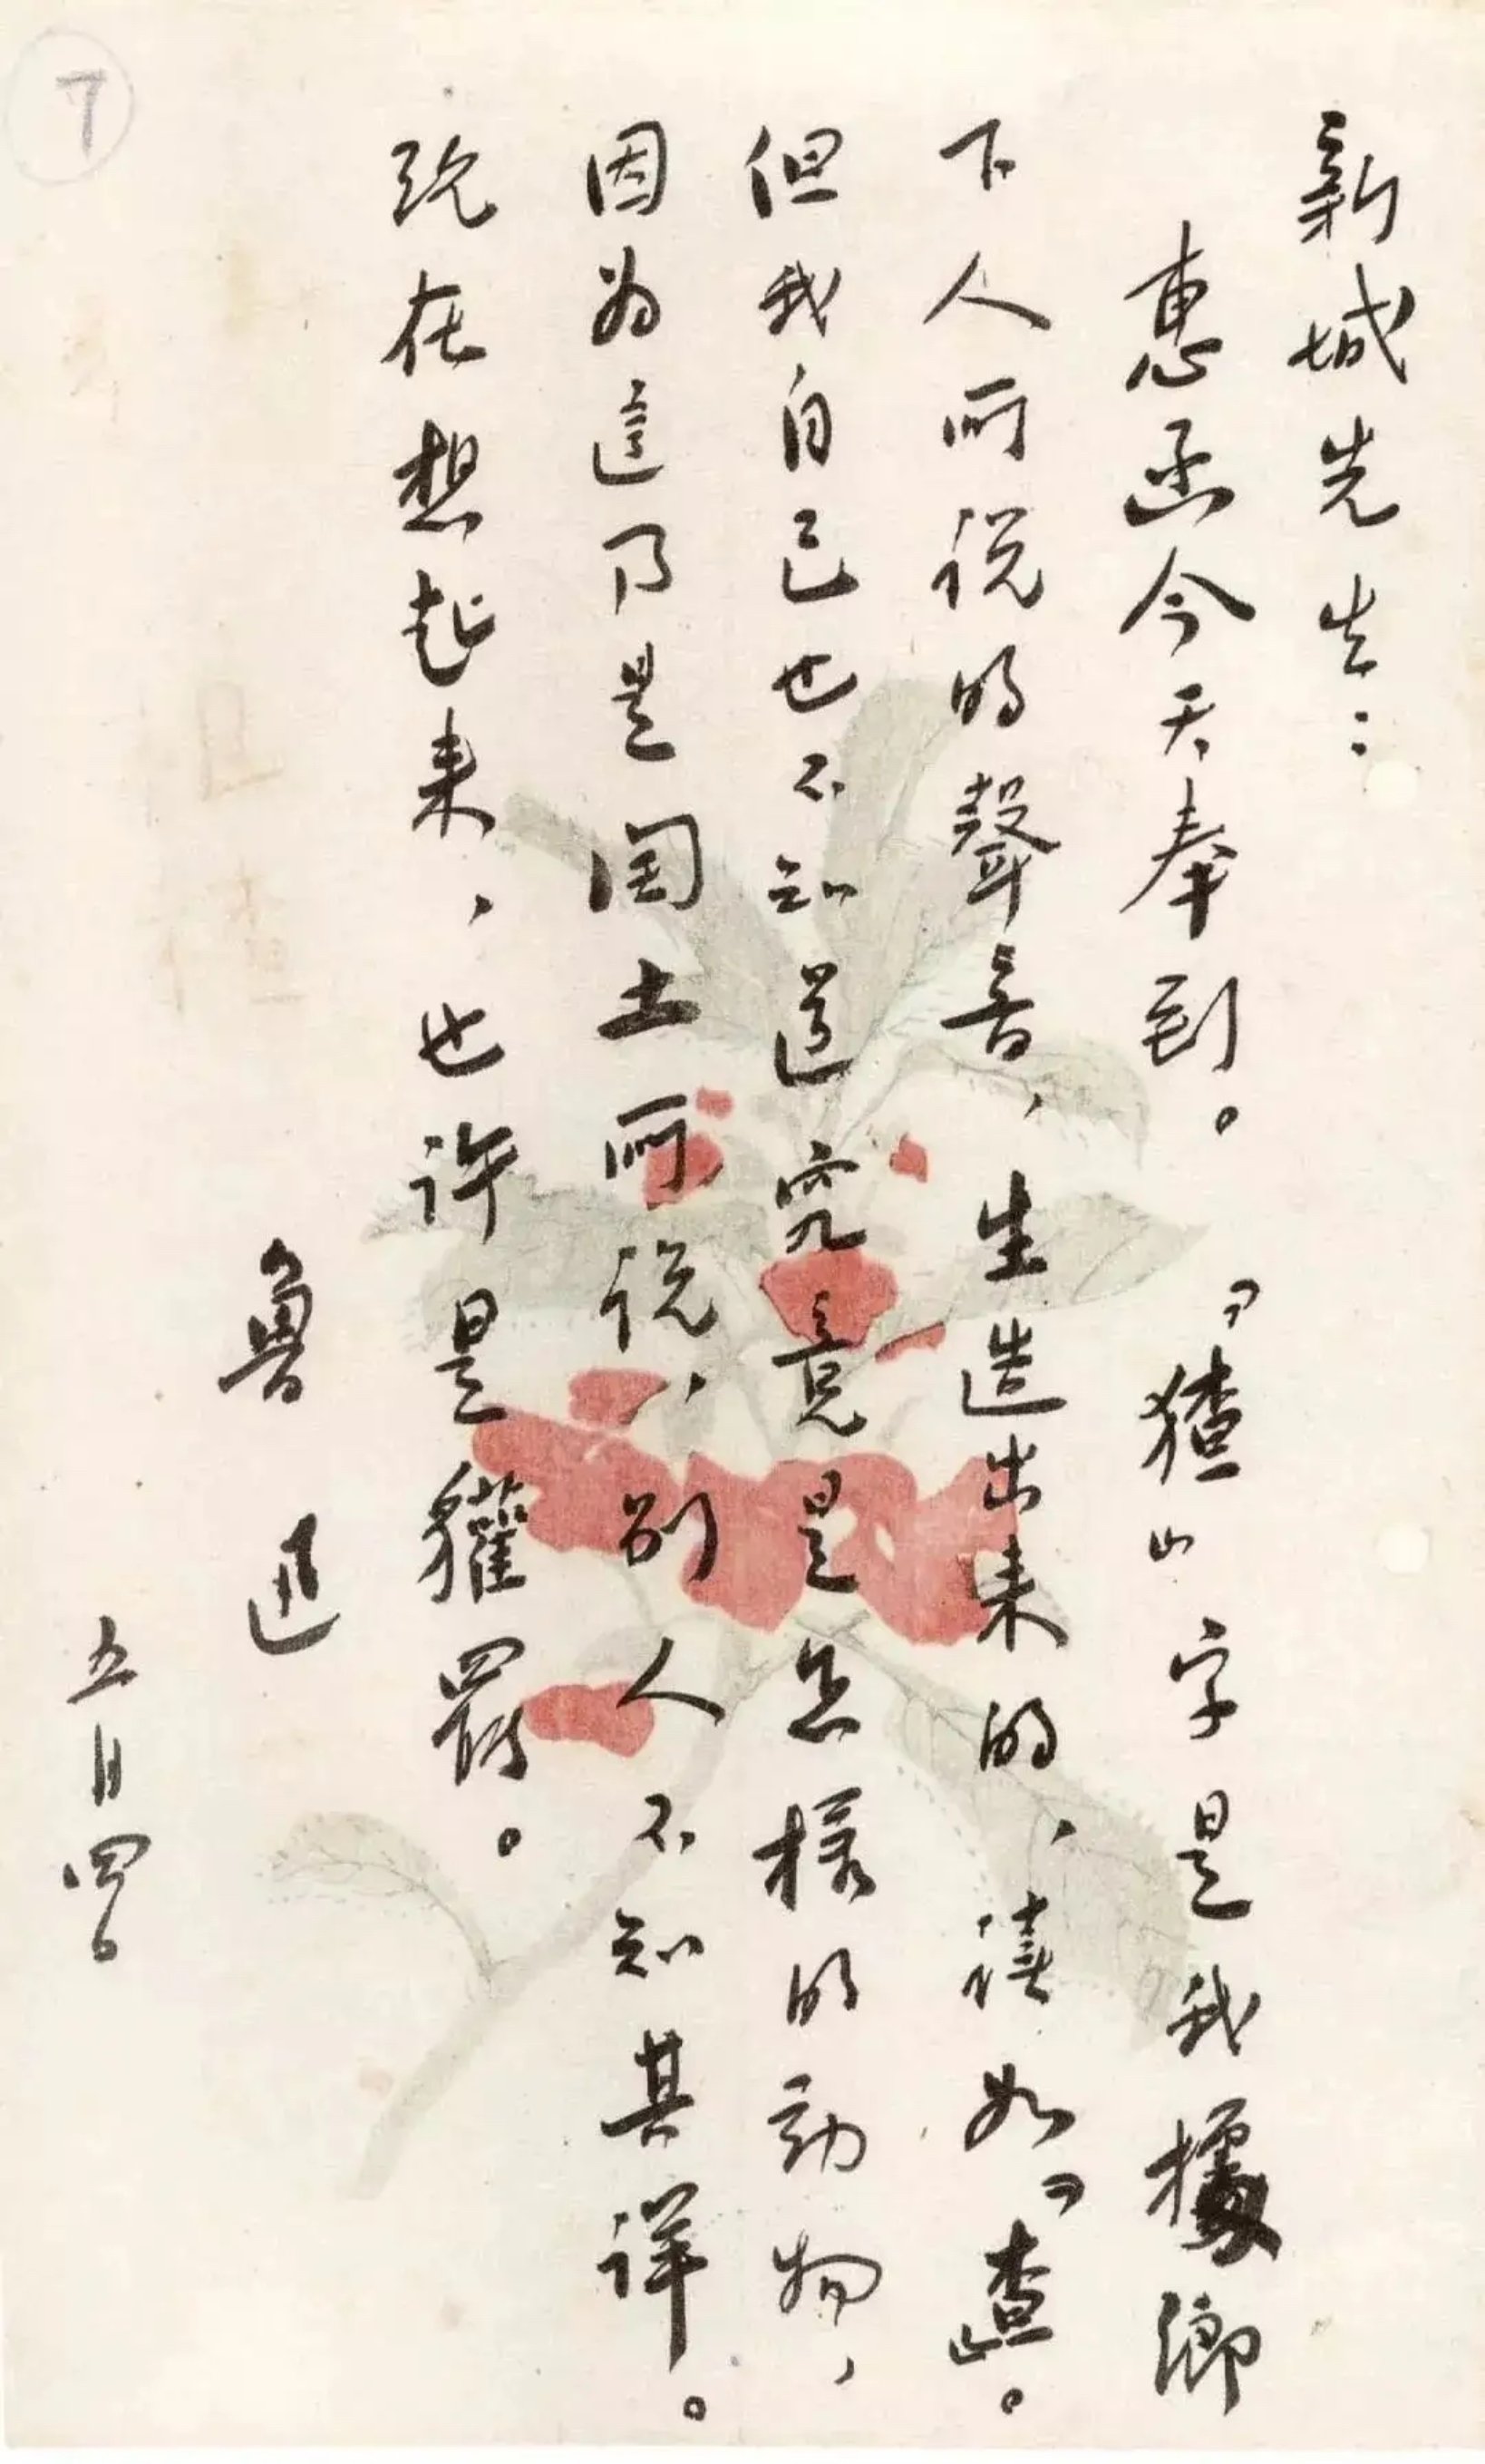 新城先生：
惠函今天奉到。『猹』字是我據鄉
下人所说的聲音，生造出来的，读如『查』。
但我自己也不知道究竟是怎樣的动物，
因为這乃是闰土所说，别人不知其详。
现在想起来，也许是獾罢。
魯迅
五月四日
7